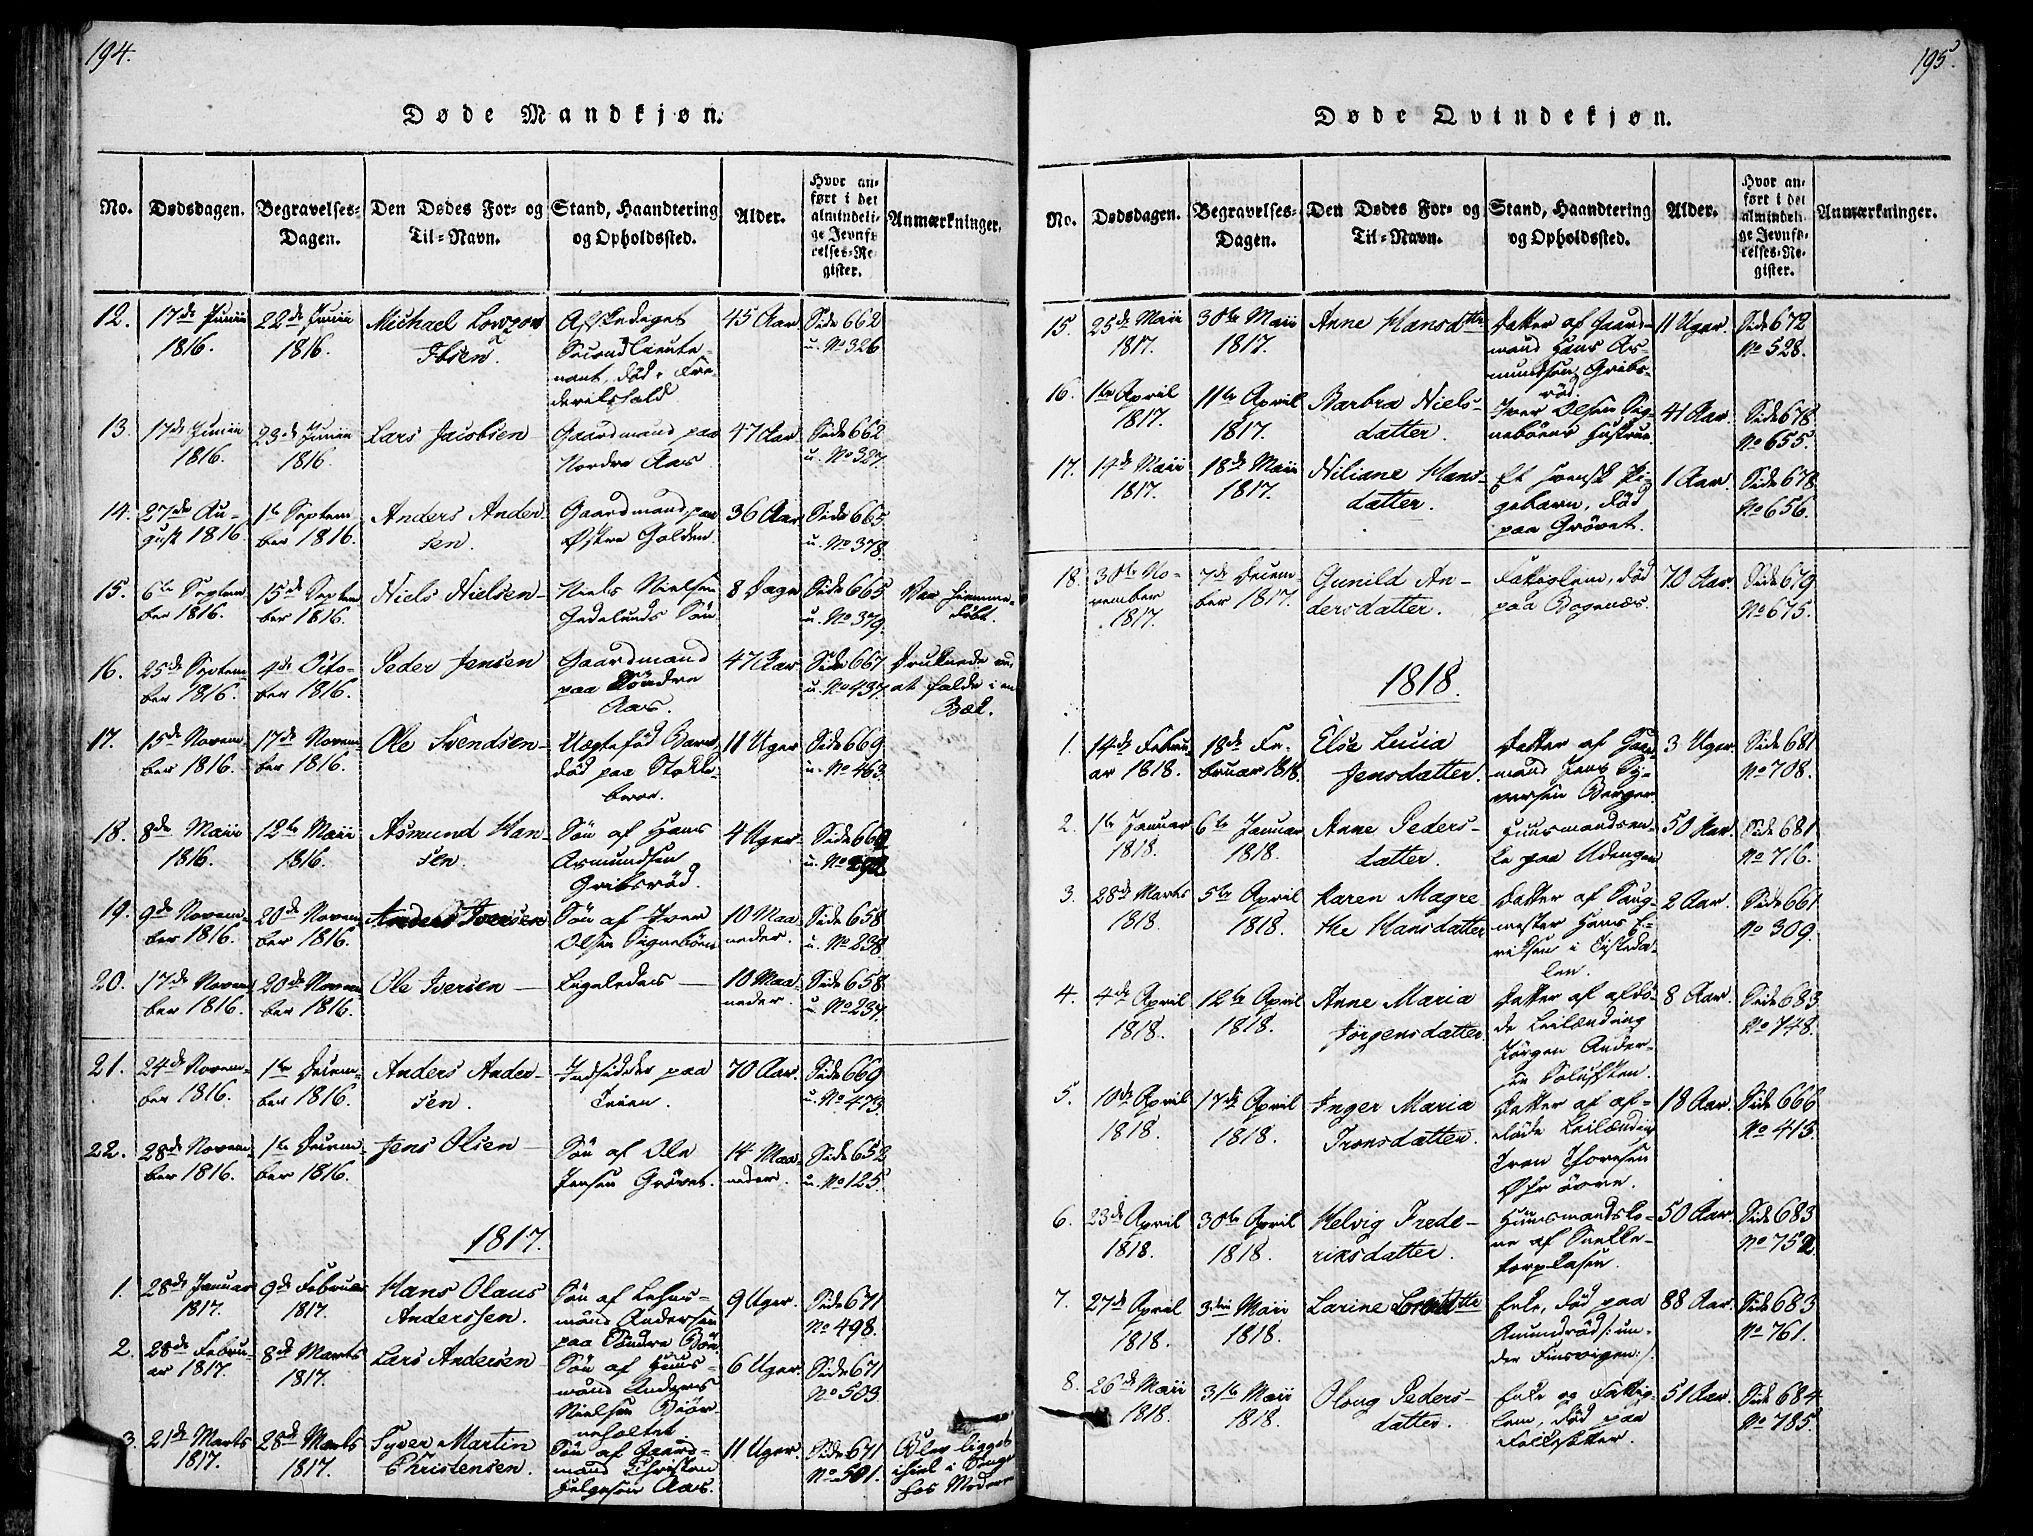 194.
Døde Mandkjøn.
No. Dødsdagen. Begravelses-Dagen. Den Dødes For- og Til-Navn. Stand, Haandtering og Opholdssted. Alder. Hvor anført i det almindelige Jevnførelses-Register. Anmærkninger.
12. 17de Junii 1816. 22de Junii 1816. Michael Lowzow Ibsen. Afskediget Secondlieutenant, død i Frederikshald 45 Aar Side 662 u. No 326
13. 17de Junii 1816. 23de Junii 1816. Lars Jacobsen Gaardmand paa Nordre Aas 47 Aar Side 662 u. No 327.
14. 27de August 1816. 1te September 1816. Anders Andersen. Gaardmand paa Østre Holden. 36 Aar Side 665 u. No 378.
15. 6te September 1816. 15de September 1816. Niels Nielsen Niels Nielsen Hedelunds Søn 8 Dage Side 665 u. No 379. Var hiemmedøbt.
16. 25de September 1816. 4de October 1816. Peder Jensen Gaardmand paa Søndre Aas. 47 Aar Side 667 u. No 437. Druknede ved at falde i en Bæk.
17. 15de November 1816. 17de November 1816. Ole Svendsen Uægtefød Barn død paa Stokkebroe. 11 Uger Side 669 u. No 463.
18. 8de Maii 1816. 12te Maii 1816. Asmund Hansen. Søn af Hans Asmundsen Gribsrød. 4 Uger Side 660 u. No
19. 9de November 1816. 20de November 1816. Anders Iversen Søn af Iver Olsen Signebøen 10 Maaneder. Side 658 u. No 238
20. 17de November 1816. 20de November 1816. Ole Iversen Ligeledes 10 Maaneder. Side 658 u. No 237.
21. 24de November 1816. 1te December 1816. Anders Andersen. Indsidder paa Veien. 70 Aar. Side 669 u. No 473.
22. 28de November 1816. 1te December 1816. Jens Olsen Søn af Ole Jensen Grøvet. 14 Maaneder. Side 652 u. No 125.
1817.
1. 28de Januar 1817. 9de Februar 1817. Hans Olaus Anderssen. Søn af Lehnsmand Andersen paa Søndre Bøn 9 Uger. Side 671 No 498.
2. 28de Februar 1817. 8de Marts 1817. Lars Andersen Søn af Huusmand Anders Nielsen Biørneholtet 6 Uger Side 671 No 503
3. 21de Marts 1817. 28de Marts 1817. Syver Martin Christensen. Søn af Gaardmand Christen Helgesen Aas. 11 Uger. Side 671 No 501. Blev ligget ihiel i Senge hos Moderen
195.
Døde Qvindekjøn.
No. Dødsdagen. Begravelses-Dagen. Den Dødes For- og Til-Navn. Stand, Haandtering og Opholdssted. Alder. Hvor anført i det almindelige Jevnførelses-Register. Anmærkninger.
15. 25de Maii 1817. 30te Maii 1817. Anne Hansdttr Datter af Gaardmand Hans Asmundsen Gribsrød. 11 Uger. Side 672 No 528.
16. 1te April 1817. 11te April 1817. Barbra Nielsdatter. Iver Olsen Signebøens Hustrue. 41 Aar. Side 678 No 655.
17. 14de Maii 1817. 18de Maii 1817. Niliane Hansdatter. Et svensk Pigebarn, død paa Grøvet. 1 Aar. Side 678 No 656.
18. 30te November 1817. 7de December 1817. Gunild Andersdatter. Fattiglem, død paa Bogenæs. 70 Aar. Side 679 No 675.
1818.
1. 14de Februar 1818. 18de Februar 1818. Else Lucia Jensdatter. Datter af Huusmand Jens Syversen Berger. 3 Uger. Side 681 No 708.
2. 1te Januar 1818. 6te Januar 1818. Anne Pedersdatter. Huusmandsenke paa Udengen 50 Aar. Side 681 No 716.
3. 28de Marts 1818. 5te April 1818. Karen Magrethe Hansdatter Datter af Saugmester Hans Eriksen i Tistedalen. 2 Aar. Side 661 No 309.
4. 4de April 1818. 12te April 1818. Anne Maria Jørgensdatter. Datter af afdøde Leilænding Jørgen Andersen 8 Aar. Side 683 No 748.
5. 10de April 1818. 17de April 1818. Inger Maria Tronsdatter. Datter af afdøde Leilænding Tron Thoresen 18 Aar. Side 666 No 413.
6. 23de April 1818. 30te April 1818. Helvig Frederiksdatter. Huusmandskone af Snekketorplasen. 50 Aar. Side 683 No 752
7. 27de April 1818. 3die Maii 1818. Larine Enke, død paa Amundrød /: under Finsvigen :/. 88 Aar. Side 683 No 761.
8. 26de Maii 1818. 31te Maii 1818. Oloug Pedersdatter. Enke og Fattiglem, død paa Folksætter. 51 Aar. Side 684 No 785.